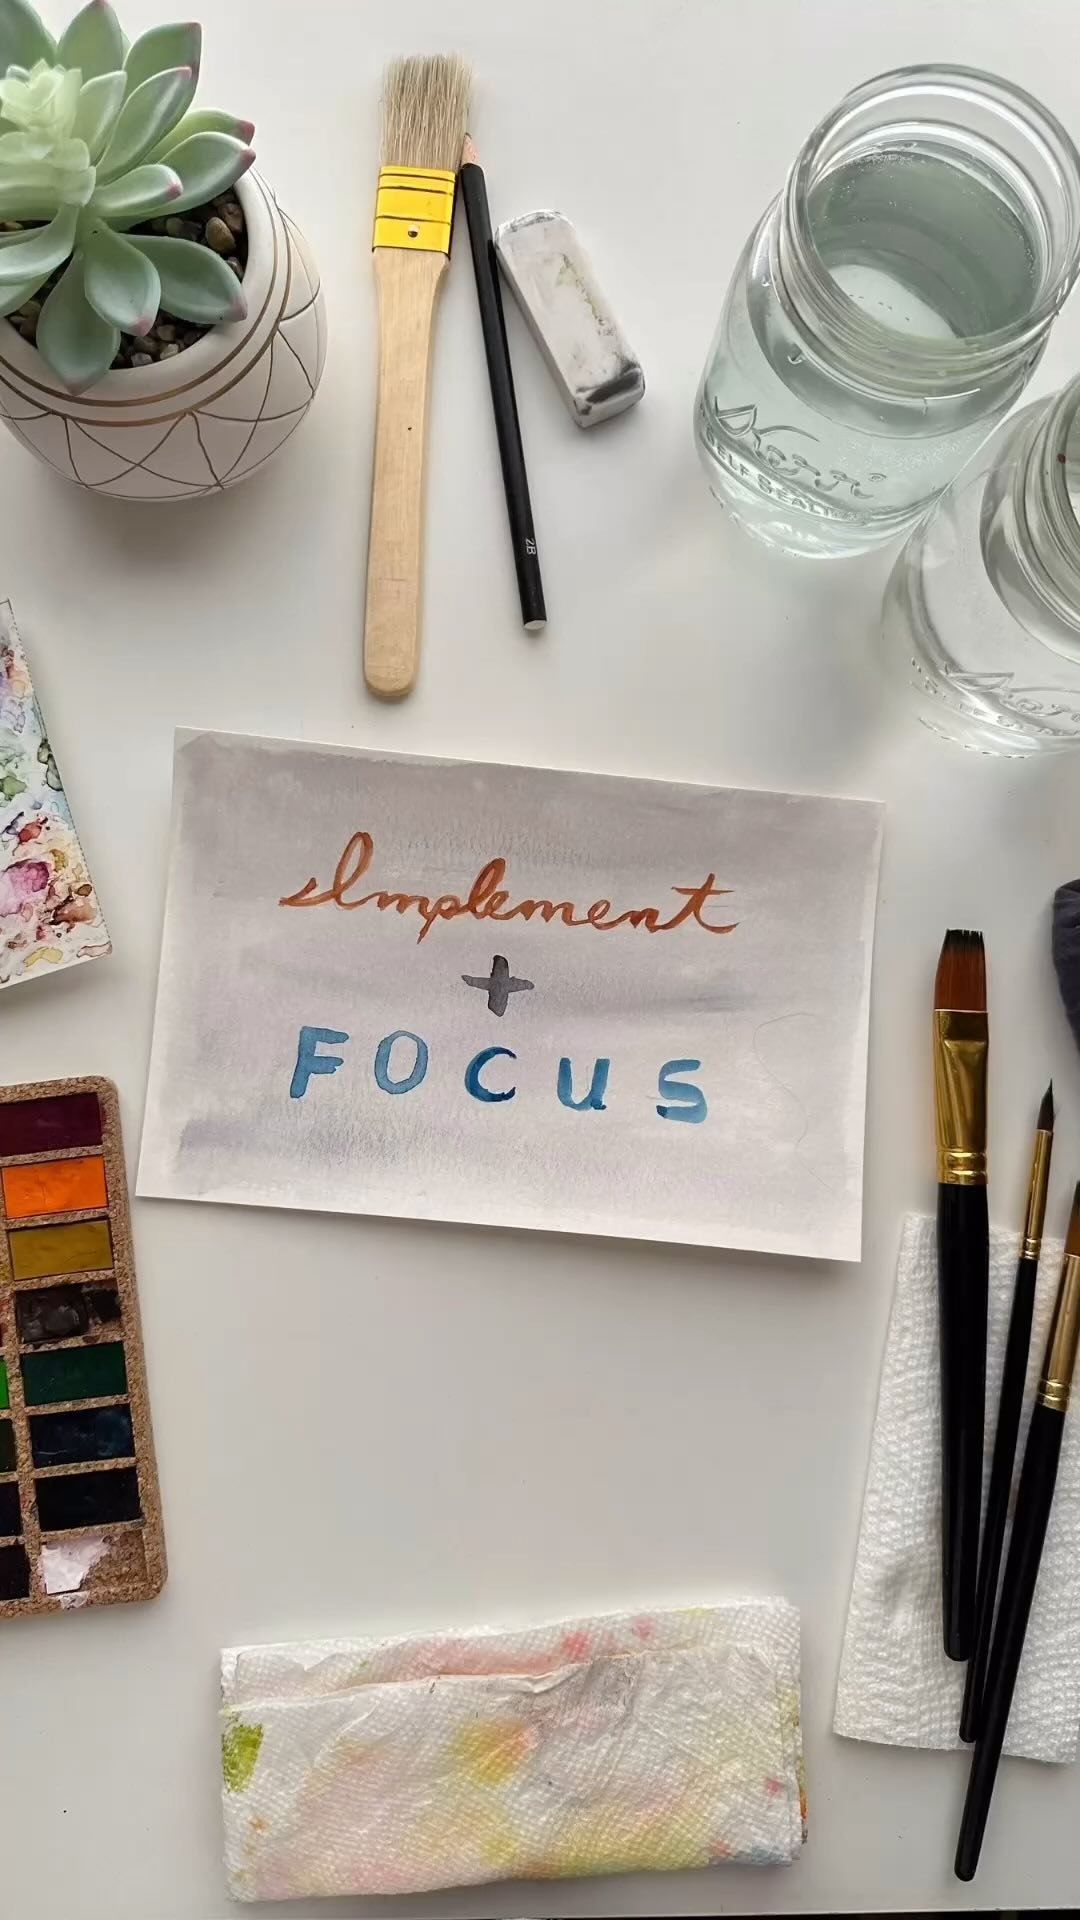 Kerr
SELF SEALI
2B
Implement
+
FOCUS